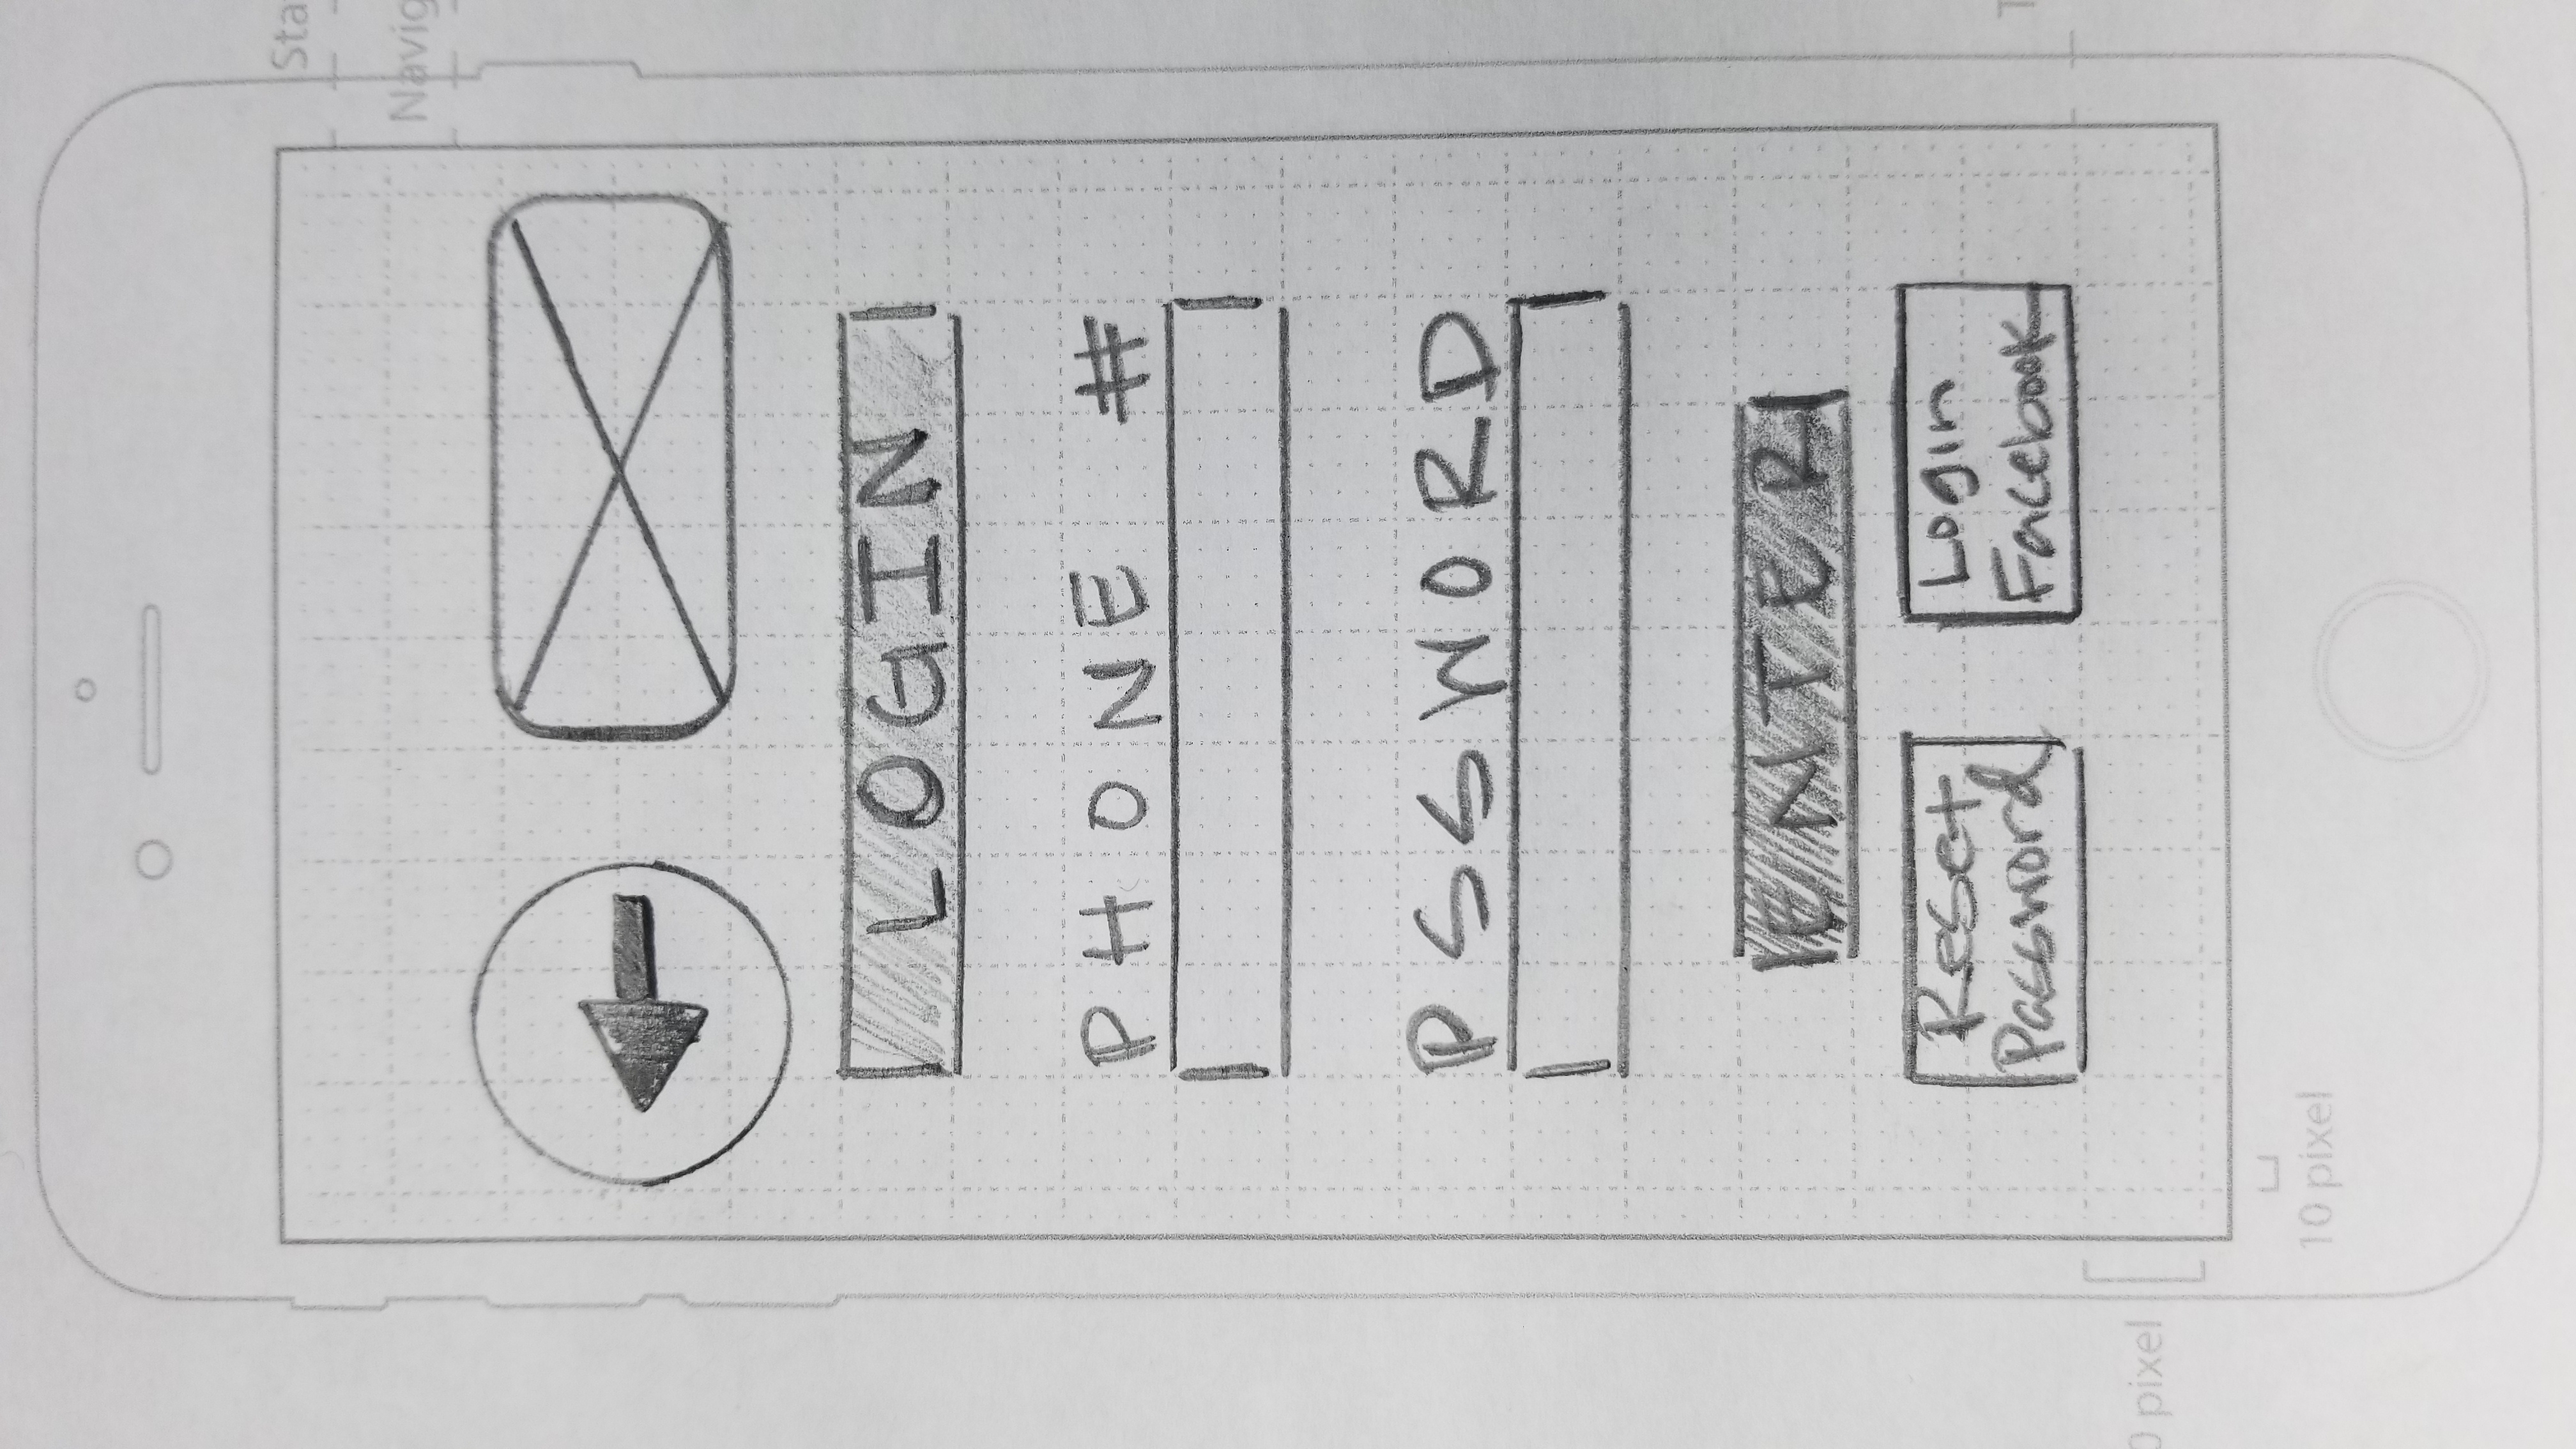 Sta
Navig
LOGIN
PHONE #
PSSWORD
ENTER
Reset
Password
Login
Facebook
T
0 pixel
10 pixel